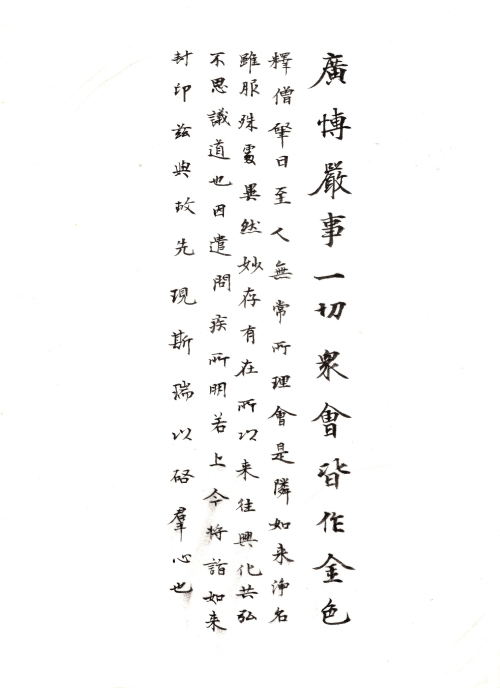 廣愽嚴事一切衆會皆作金色
釋僧肇曰至人無常所理會是隣如来淨名
雖服殊處異然妙存有在所以来往興化共弘
不思議道也因遣問疾所明若上今将詣如来
封印兹典故先現斯瑞以啓羣心也